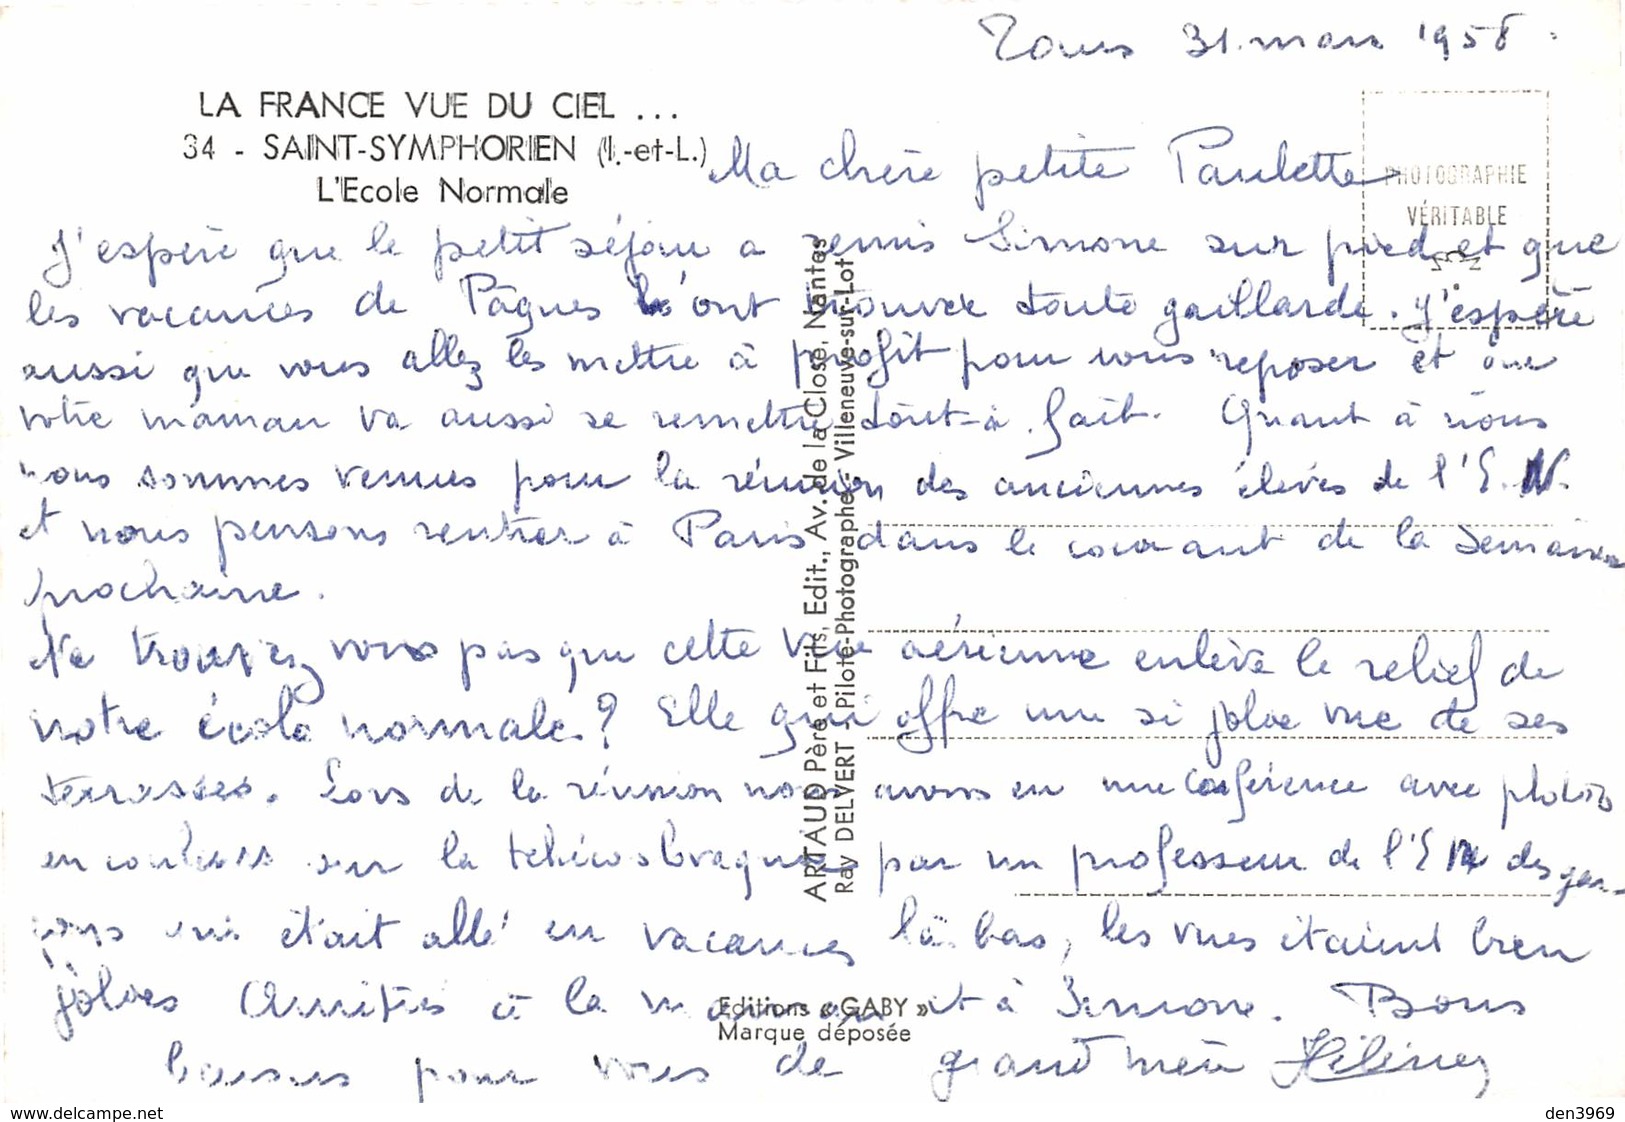 Tours 31 mars 1958.
LA FRANCE VUE DU CIEL ...
34 - SAINT-SYMPHORIEN (I.-et-L.)
L'Ecole Normale
PHOTOGRAPHIE
VÉRITABLE
Ma chère petite Paulette
J'espère que le petit séjour a remis Simone sur pied et que
les vacances de Pâques l'ont trouvée toute gaillarde. J'espère
aussi que vous allez les mettre à profit pour vous reposer et que
votre maman va aussi se remettre tout-à-fait. Quant à nous
nous sommes venues pour la réunion des anciennes élèves de l'E.N.
et nous pensons rentrer à Paris dans le courant de la semaine
prochaine.
Ne trouvez vous pas que cette vue aérienne enlève le relief de
notre école normale? Elle qui offre une si jolie vue de ses
terrasses. Lors de la réunion nous avons eu une conférence avec photos
en couleurs sur la tchécoslovaquie par un professeur de l'EN des gar-
çons qui était allé en vacances là bas, les vues étaient bien
jolies Amitiés à la maman et à Simone. Bons
baisers pour vous de grand mère
ARTAUD Père et Fils, Edit., Av. de la Close, Nantes
Ray DELVERT - Pilote-Photographe - Villeneuve-sur-Lot
Editions « GABY »
Marque déposée
www.delcampe.net
den3969